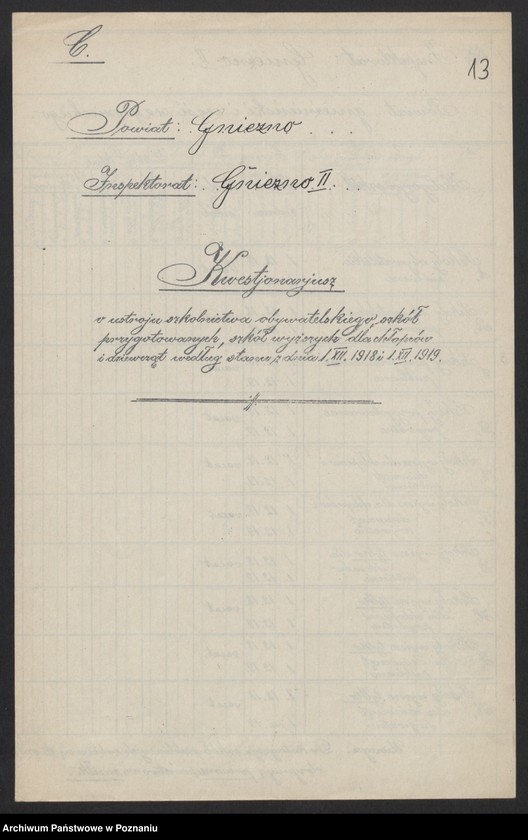 C.
13
Powiat: Gniezno . . .
Inspektorat: Gniezno II. . .
Kwestjonarjusz
o ustroju szkolnictwa obywatelskiego, szkół
przygotowanych, szkół wyższych dla chłopców
i dziewcząt według stanu z dnia 1. XII. 1918 i 1. XII. 1919.
Archiwum Państwowe w Poznaniu